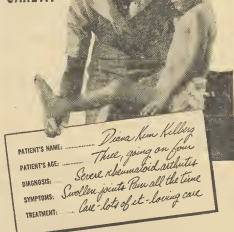 PATIENT'S NAME: Diana Kim Kilberg
PATIENT'S AGE: Three, going on four
DIAGNOSIS: Severe rheumatoid arthritis
SYMPTOMS: Swollen joints Pain all the time
TREATMENT: Care - lots of it - loving care